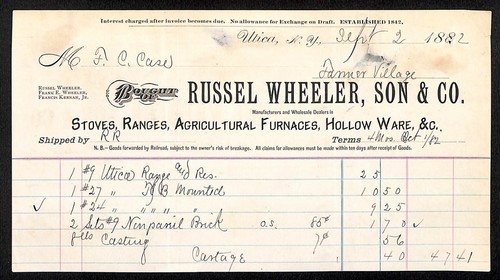 Interest charged after invoice becomes due. No allowance for Exchange on Draft. ESTABLISHED 1842.
Utica, N.Y. Sept 2 1882
M F. C. Case
Farmer Village
RUSSEL WHEELER.
FRANK E. WHEELER.
FRANCIS KERNAN, JR.
BOUGHT OF RUSSEL WHEELER, SON & CO.
Manufacturers and Wholesale Dealers in
STOVES, RANGES, AGRICULTURAL FURNACES, HOLLOW WARE, &C.
Shipped by RR Terms 4 Mos. Oct 1/82
N. B.—Goods forwarded by Railroad, subject to the owner's risk of breakage. All claims for allowances must be made within ten days after receipt of Goods.
1 #9 Utica Range and Res. 25
1 #27 " B Mounted 10 50
1 #24 " " " " 9 25
2 Sets #9 Brick a.s. 85¢ 1 70
8 lbs Casting 7¢ 56
Cartage 40 47 41